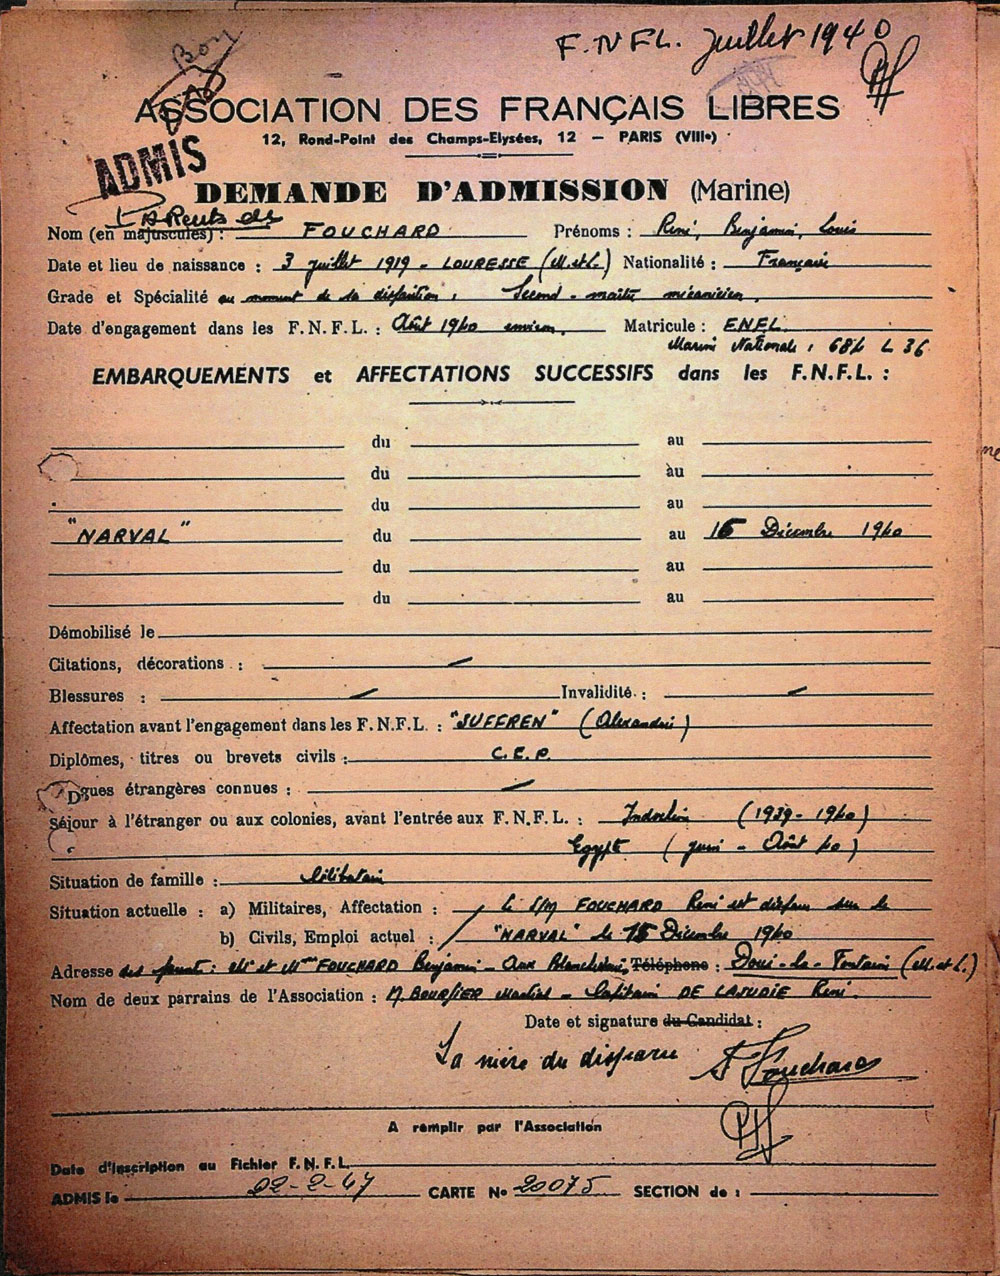 Bon
F.N.F.L. Juillet 1940
ASSOCIATION DES FRANÇAIS LIBRES
12, Rond-Point des Champs-Elysées, 12 — PARIS (VIIIe)
ADMIS
DEMANDE D'ADMISSION (Marine)
PARents de
Nom (en majuscules) : FOUCHARD Prénoms : René, Benjamin, Louis
Date et lieu de naissance : 3 juillet 1919 - LOURESSE (M.et L.) Nationalité : Française
Grade et Spécialité au moment de sa disparition : Second-maître mécanicien.
Date d'engagement dans les F.N.F.L. : Août 1940 environ. Matricule : FNFL
Marine Nationale : 684 L 36
EMBARQUEMENTS et AFFECTATIONS SUCCESSIFS dans les F.N.F.L. :
du au
du au
du au
"NARVAL" du au 15 Décembre 1940
du au
du au
Démobilisé le
Citations, décorations : —
Blessures : — Invalidité : —
Affectation avant l'engagement dans les F.N.F.L. : "SUFFREN" (Alexandrie)
Diplômes, titres ou brevets civils : C.E.P.
gues étrangères connues : —
Séjour à l'étranger ou aux colonies, avant l'entrée aux F.N.F.L. : Indochine (1939-1940)
Egypte (juin - Août 40)
Situation de famille : célibataire
Situation actuelle : a) Militaires, Affectation : Le S/M FOUCHARD René est disparu sur le
b) Civils, Emploi actuel : "NARVAL" le 15 Décembre 1940
Adresse des parents : Mr et Mme FOUCHARD Benjamin - Aux Téléphone : Doué-la-Fontaine (M.et L.)
Nom de deux parrains de l'Association : M BOURSIER Martial - Capitaine DE LAJUDIE René.
Date et signature du Candidat :
La mère du disparu Fouchard
A remplir par l'Association
Date d'inscription au Fichier F.N.F.L.
ADMIS le 02-2-47 CARTE No 20075 SECTION de :